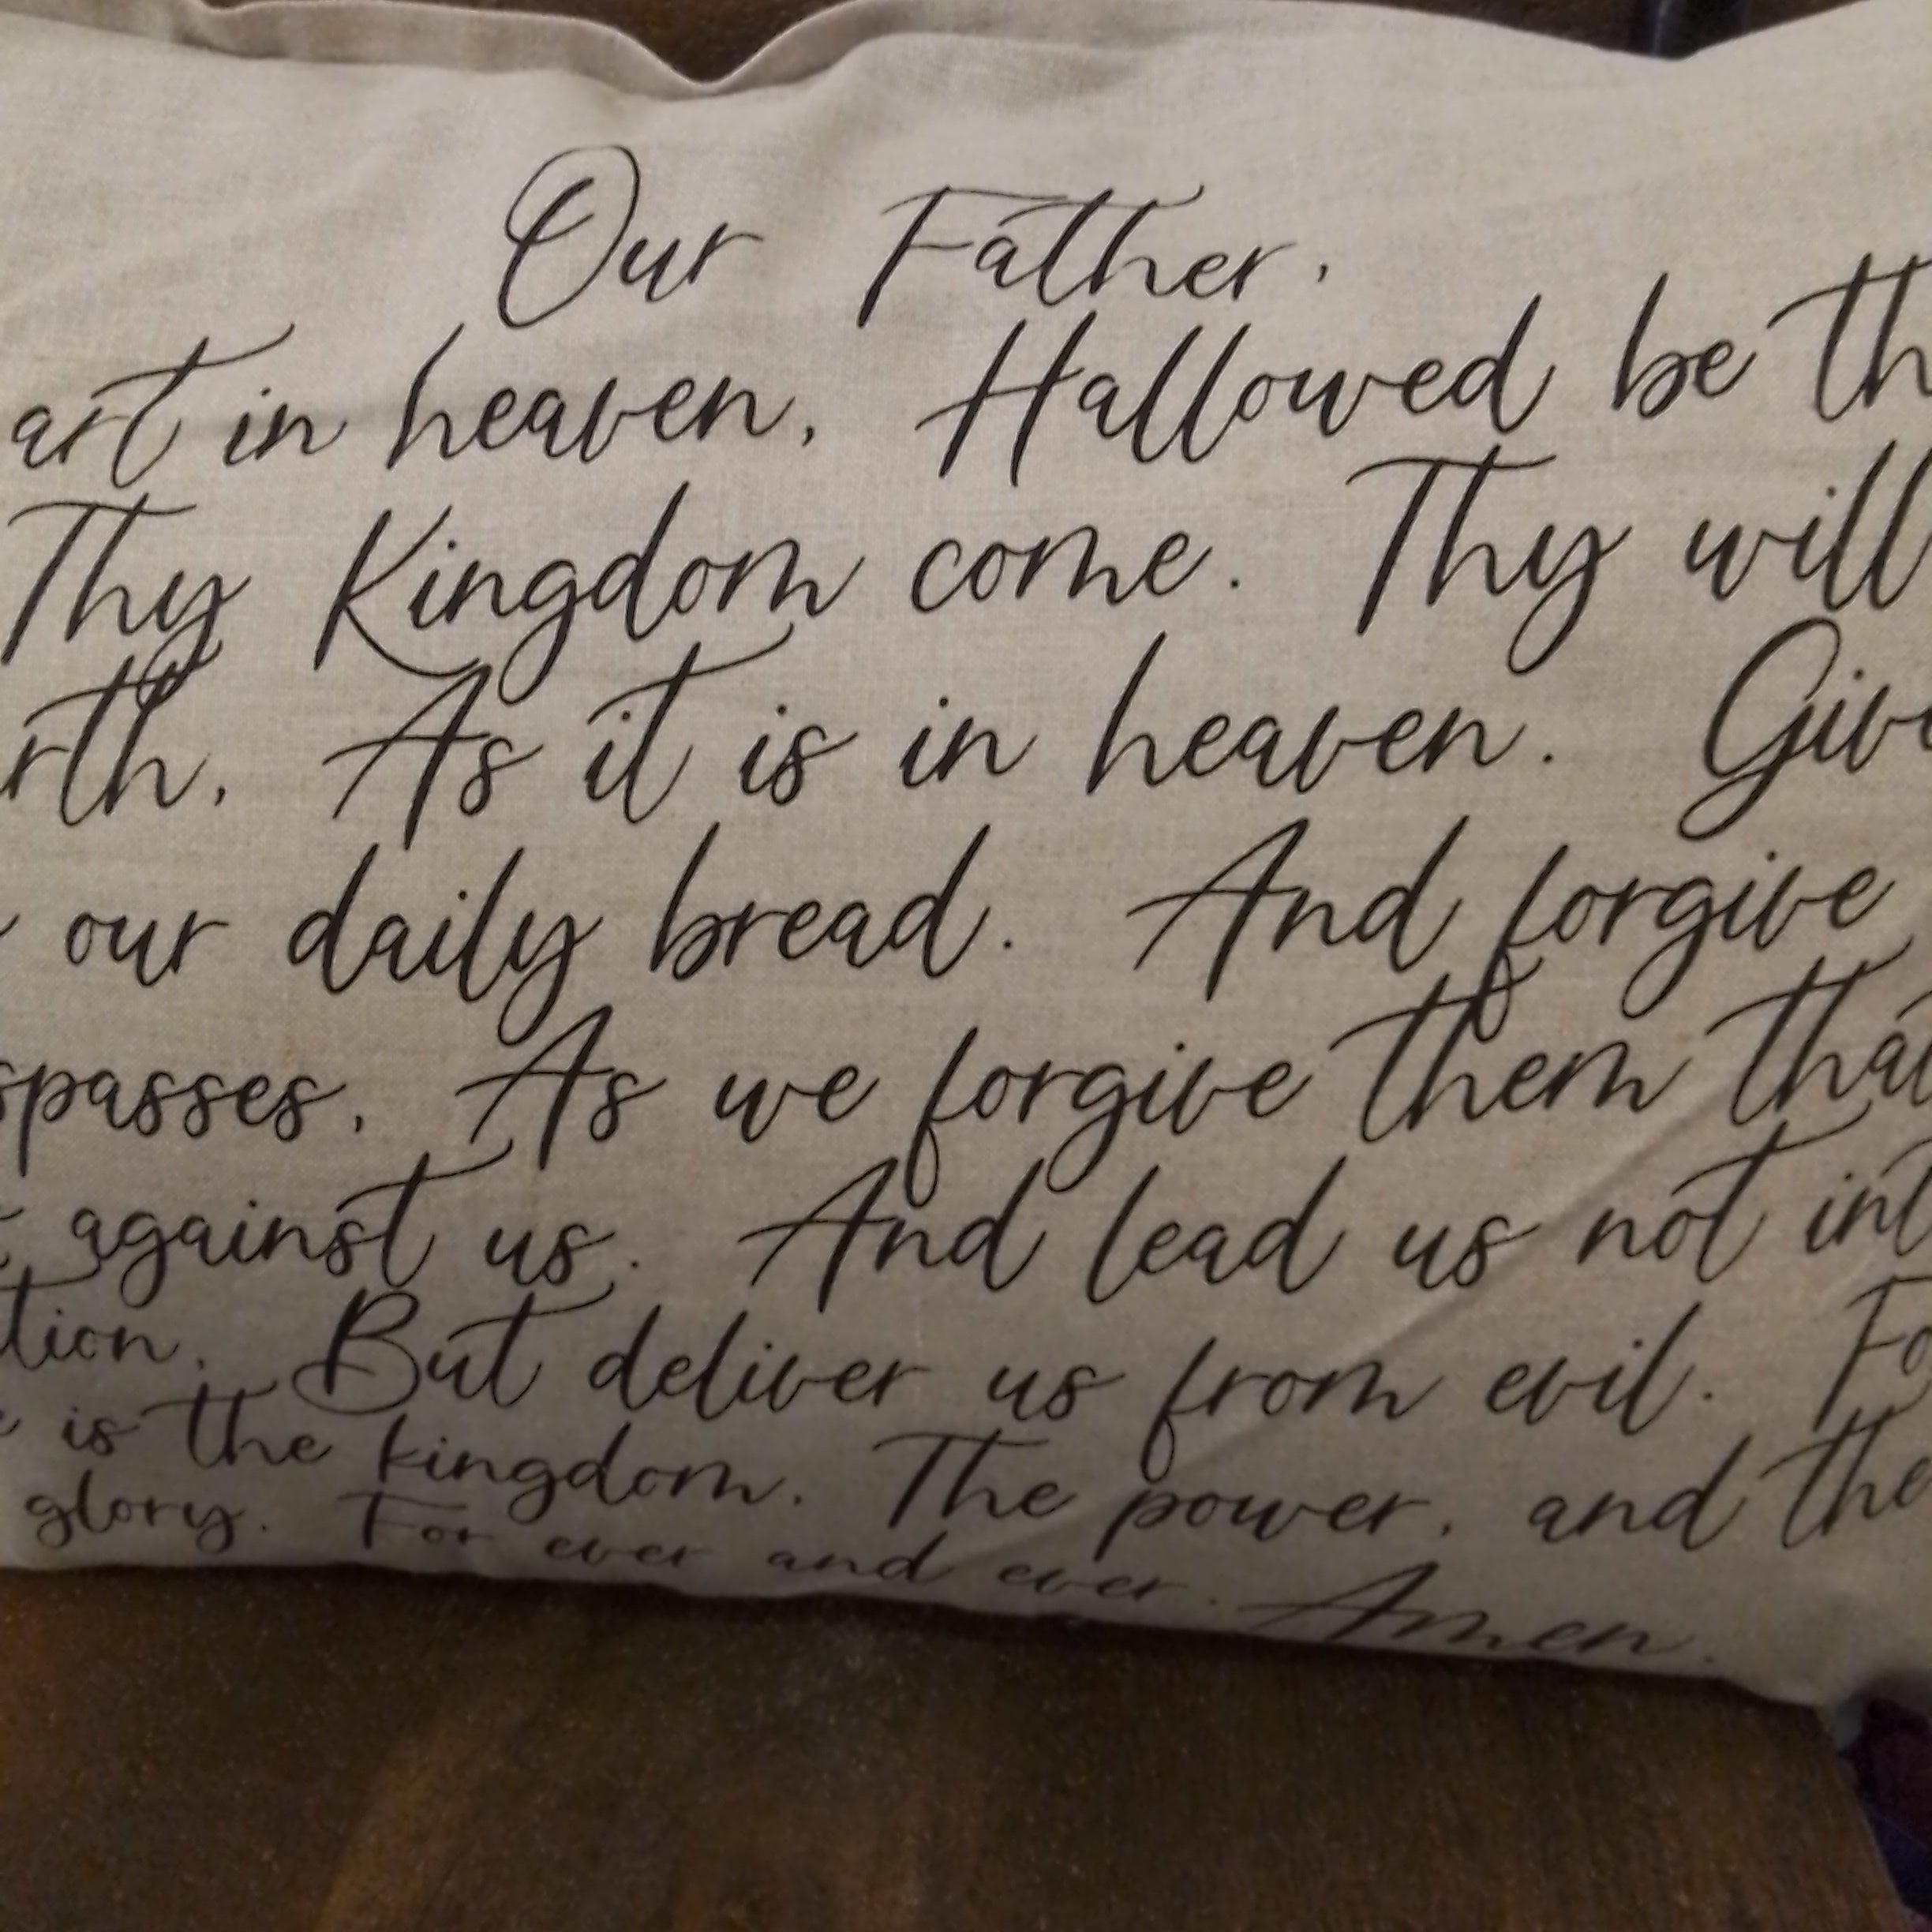 Our Father,
art in heaven, Hallowed be th
Thy Kingdom come. Thy will
rth, As it is in heaven. Give
our daily bread. And forgive
spasses, As we forgive them that
against us. And lead us not int
tion, But deliver us from evil. Fo
is the kingdom, The power, and the
glory. For ever and ever. Amen.